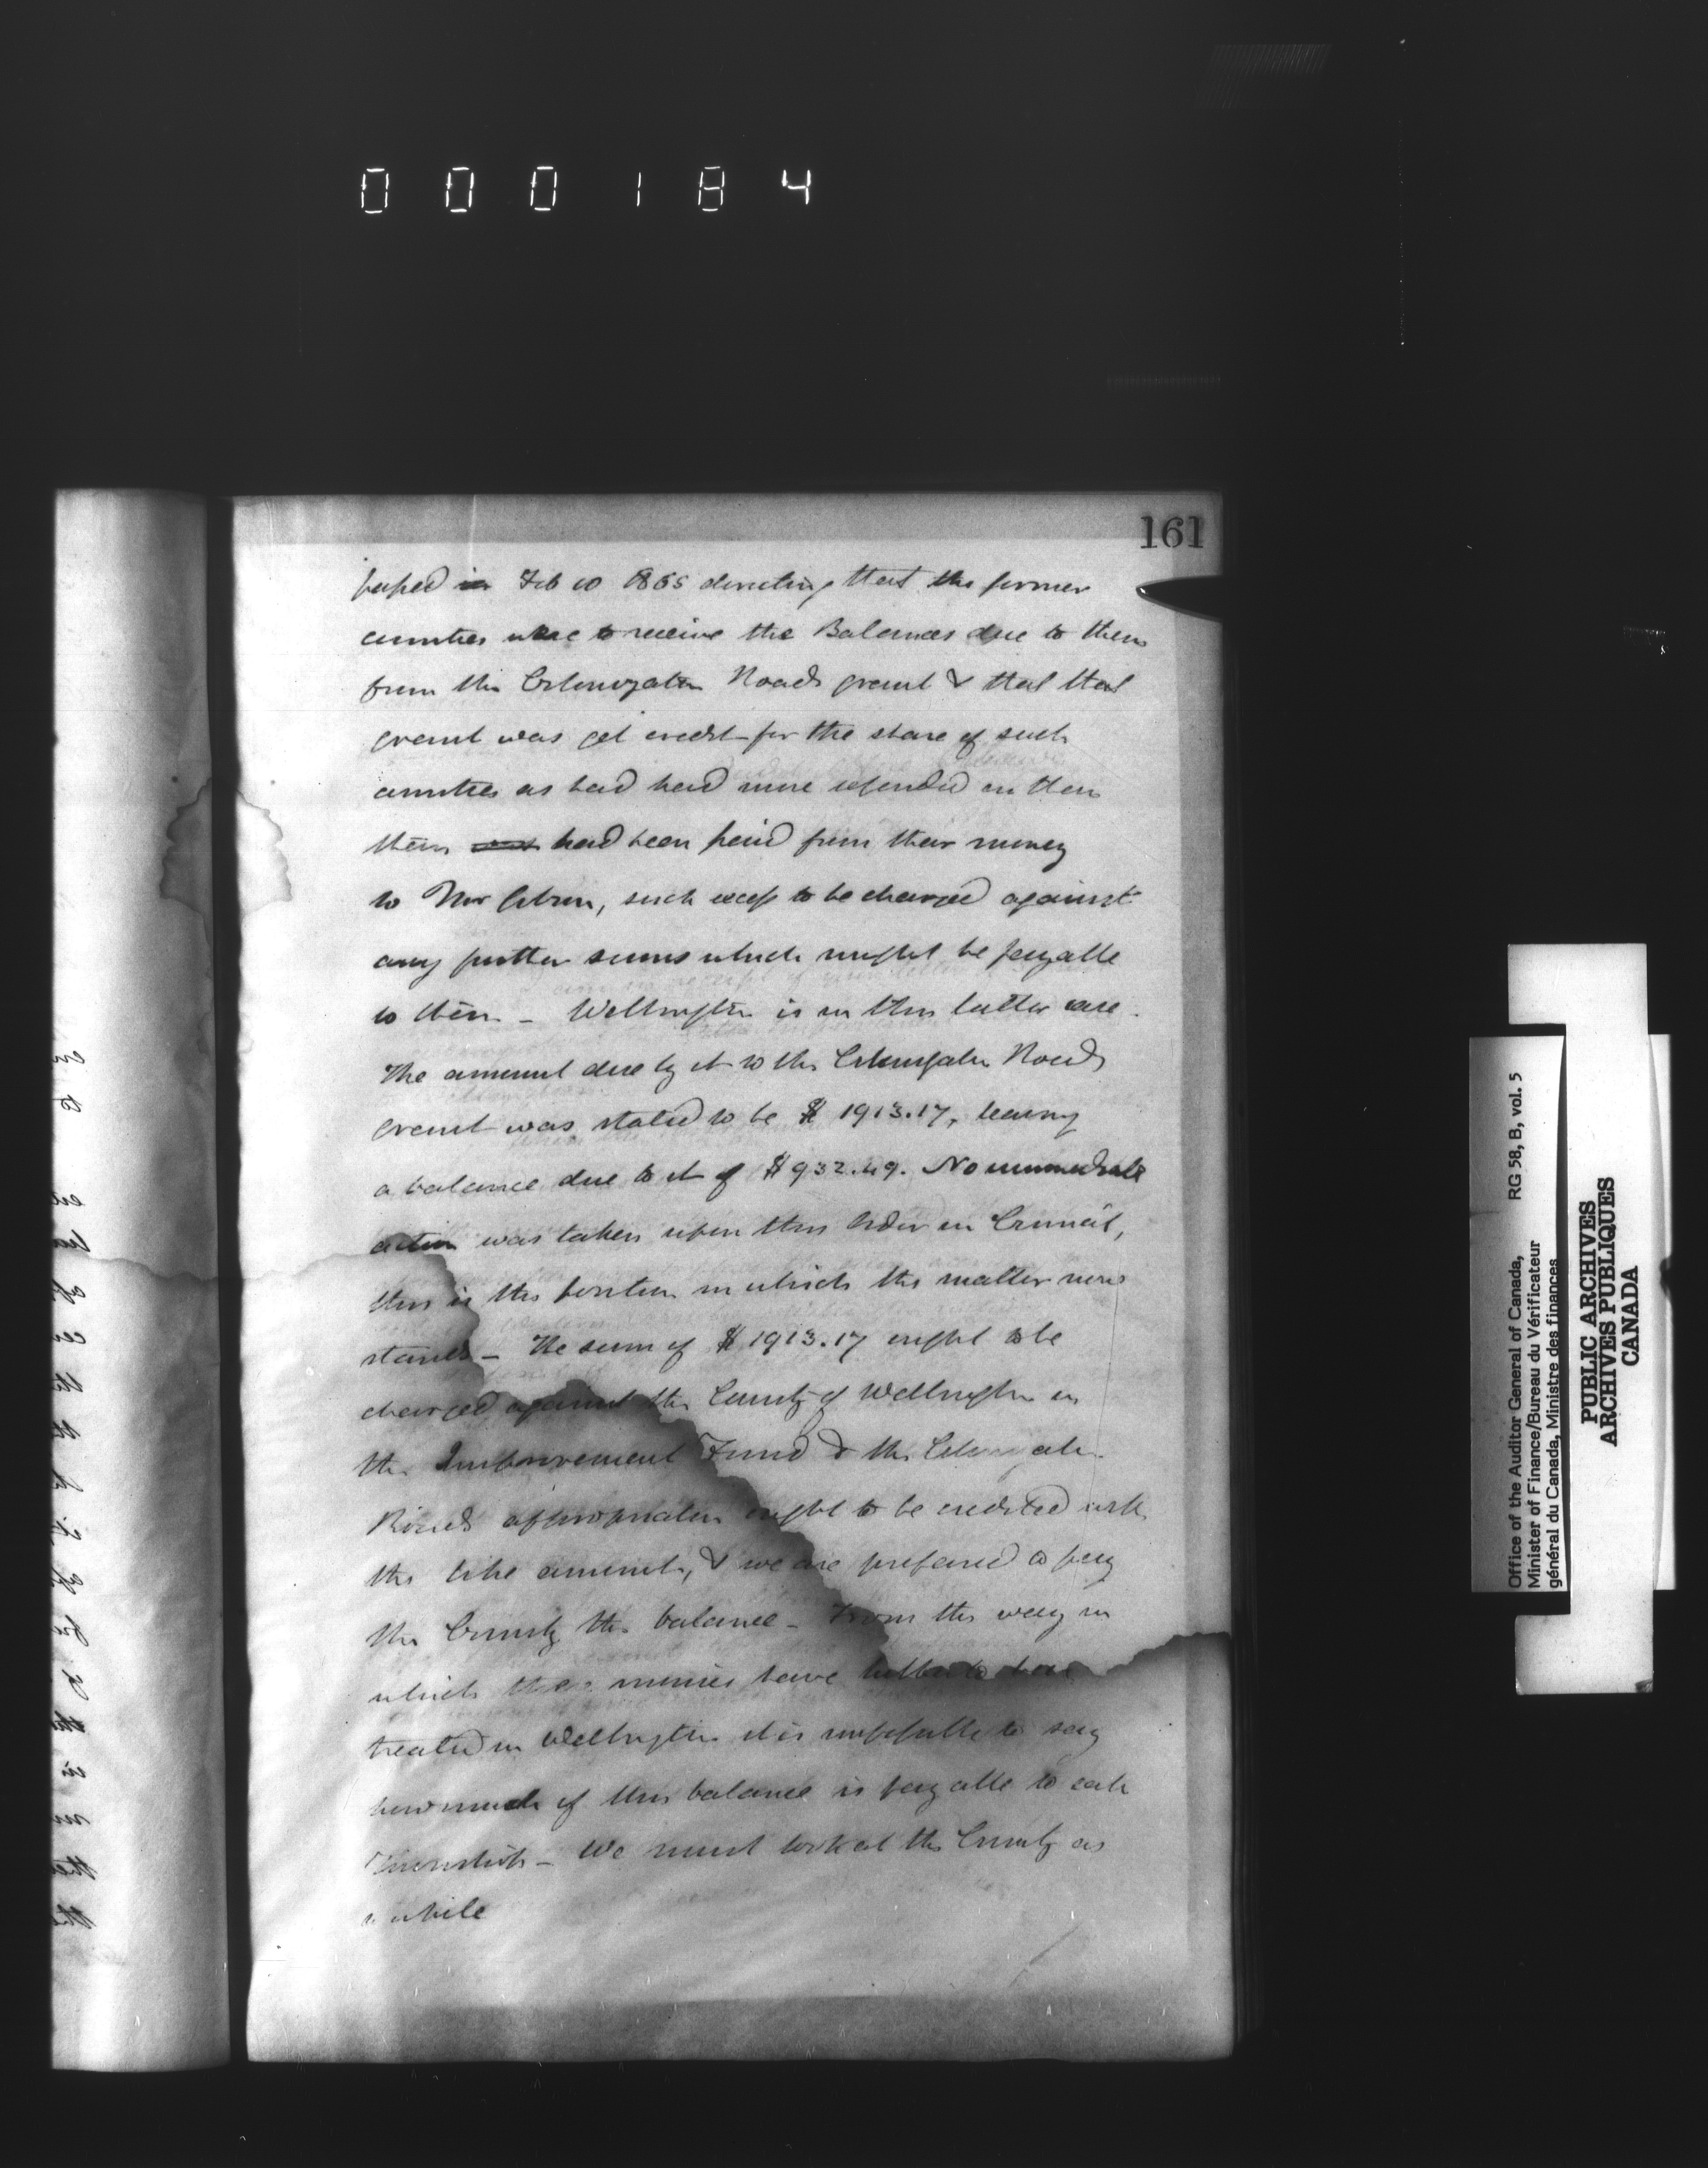 000184
161
passed in Feb 10 1865 directing that the former
counties were to receive the Balances due to them
from the Colonization Roads grant & that that
grant was get credit for the share of such
counties as had had more expended on them
them had been paid from their money
to Mr Gibson, such excess to be charged against
any further sums which might be payable
to them - Wellington is in this latter case.
The amount due by it to the Colonization Roads
grant was stated to be $1913.17, leaving
a balance due to it of $932.49. No immediate
action was taken upon this Order in Council,
this is the position in which the matter now
stands - The sum of $1913.17 ought to be
charged against the County of Wellington in
the Improvement Fund & the Colonization
Roads appropriation ought to be credited with
the like amount, & we are prepared to pay
the County the balance - From the way in
which these monies have hitherto been
treated in Wellington it is impossible to say
how much of this balance is payable to each
Township - We must look at the County as
a whole
Office of the Auditor General of Canada, RG 58, B, vol. 5
Minister of Finance/Bureau du Vérificateur
général du Canada, Ministre des finances
PUBLIC ARCHIVES
ARCHIVES PUBLIQUES
CANADA